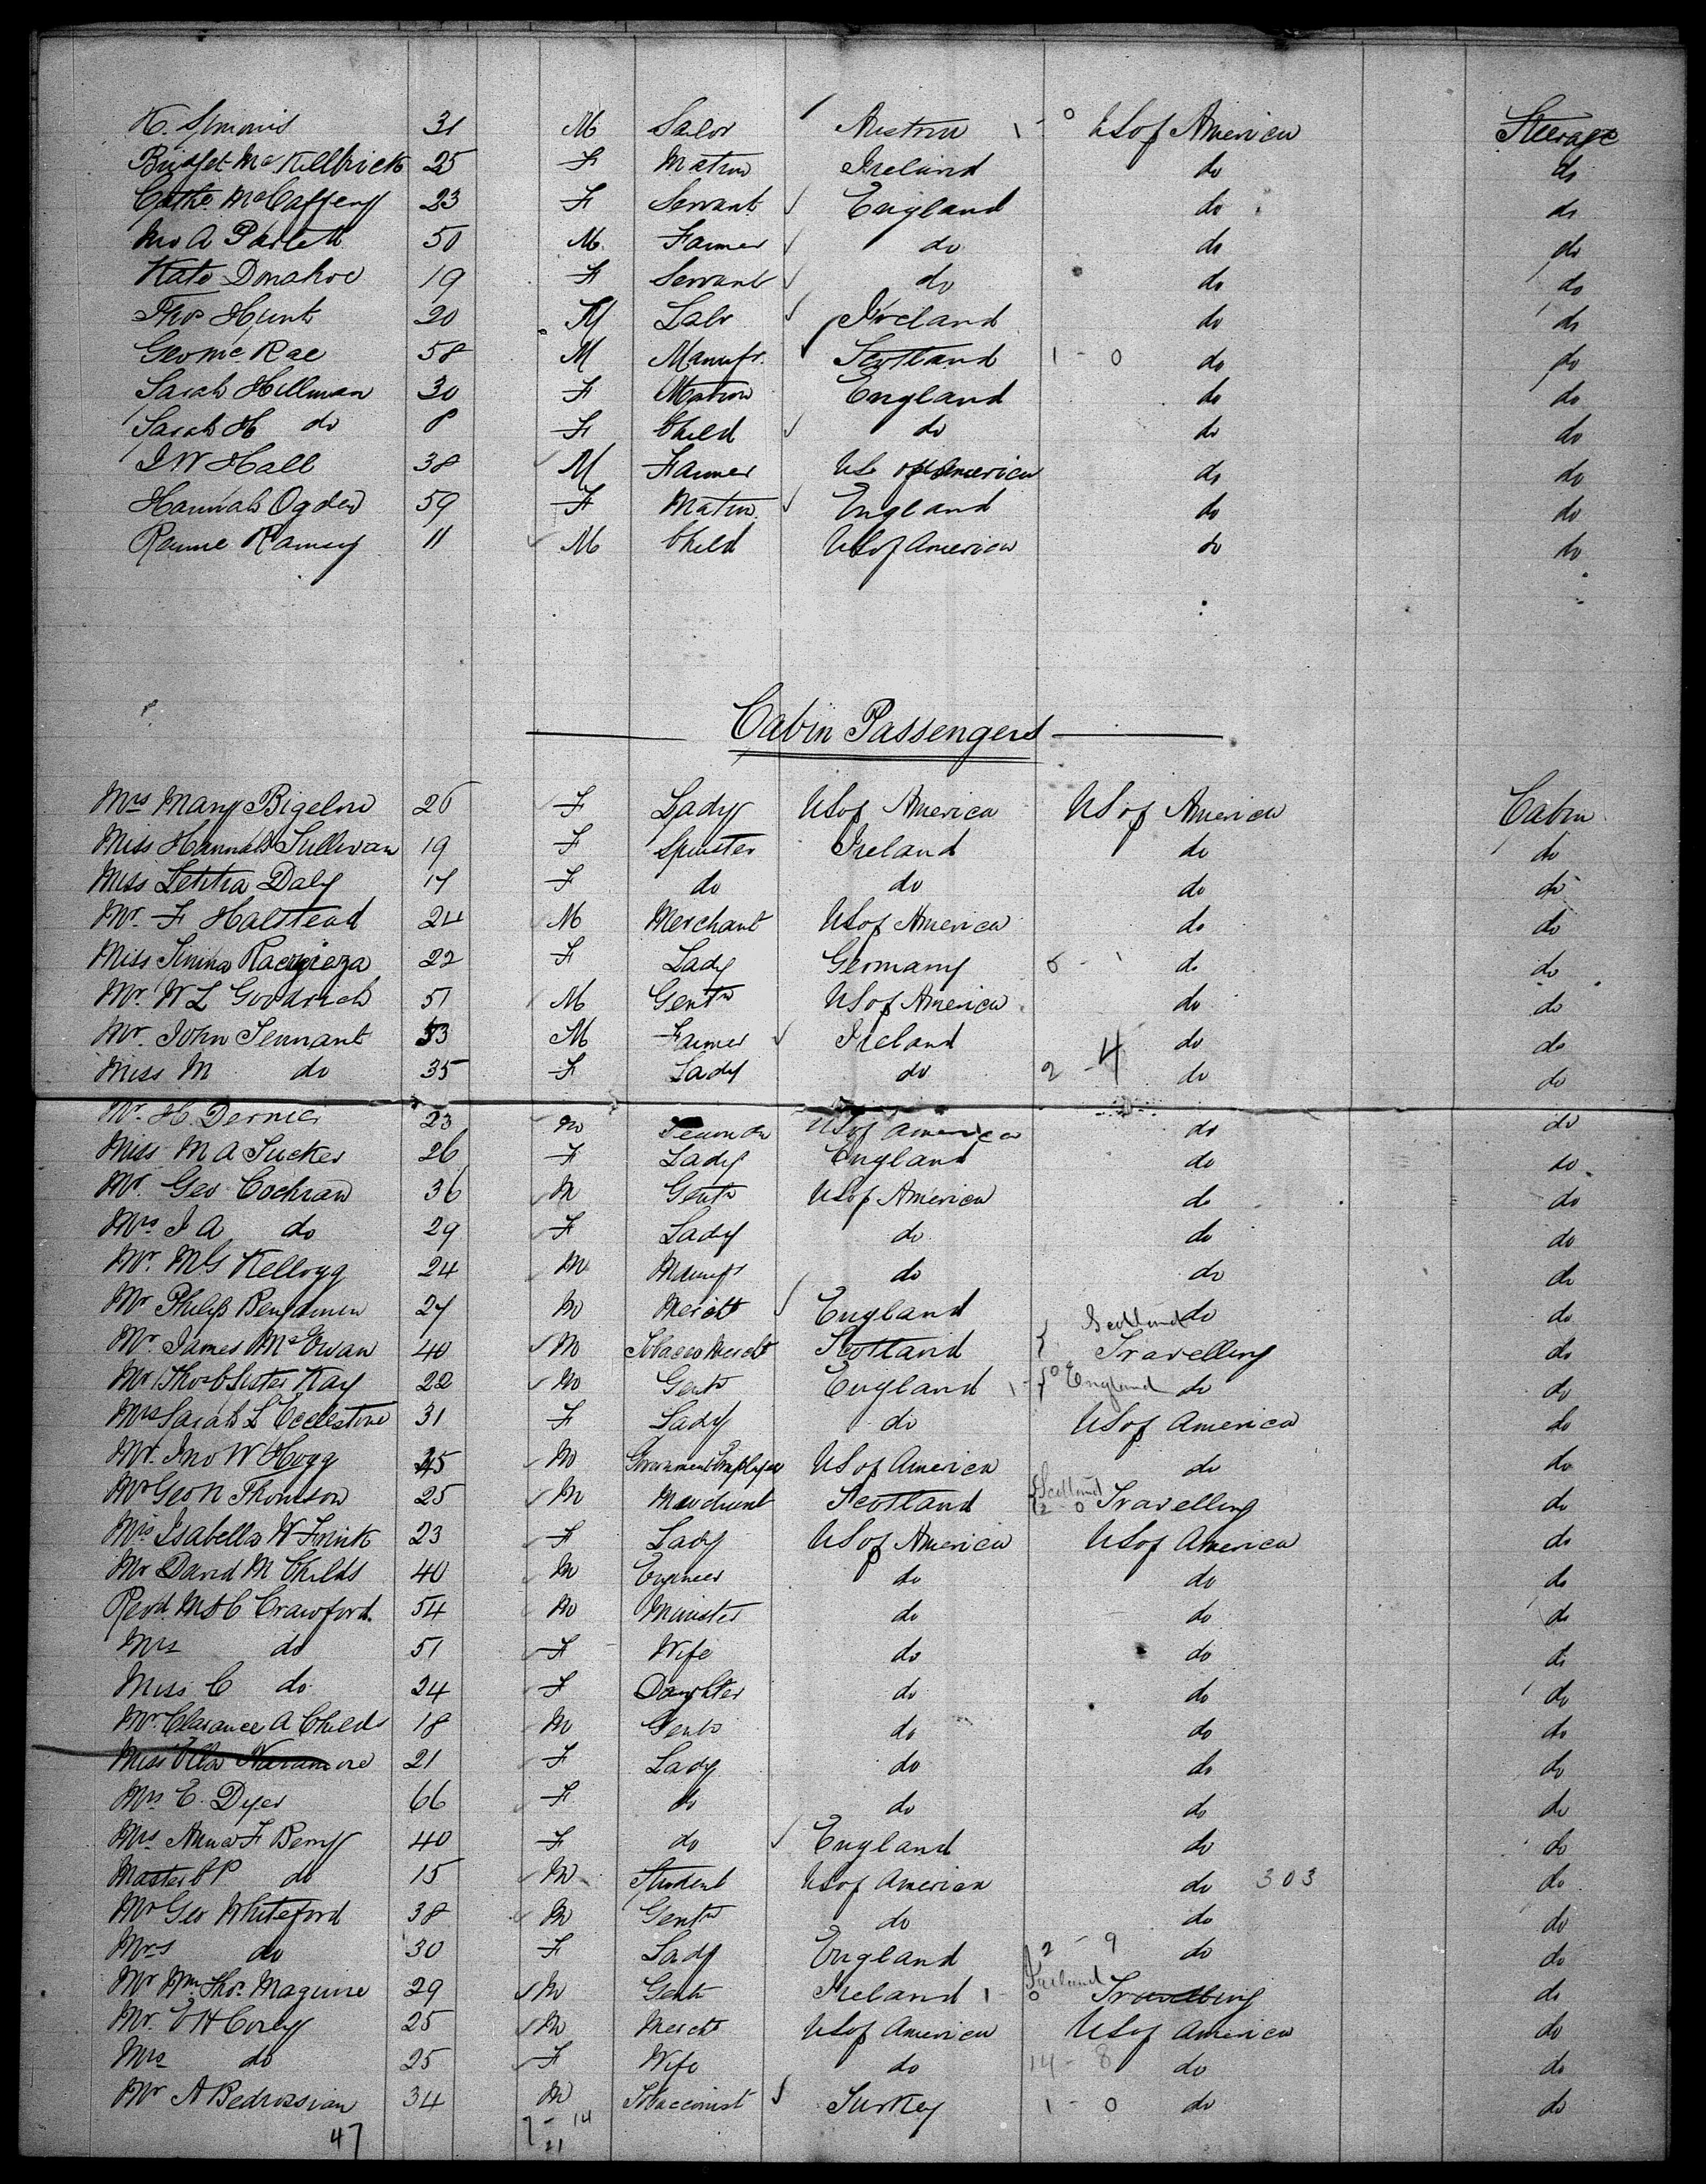 31 M Labr Austria 1 - 0 US of America Steerage
Bridget McKillbrick 25 F Matron Ireland do do
Cathe McCaffery 23 F Servant England do do
50 M Farmer do do do
Kate Donahoe 19 F Servant do do do
Thos Hunt 20 M Labr Ireland do do
Geo McRae 58 M Manufr Scotland 1 - 0 do do
Sarah Hillman 30 F Matron England do do
Sarah H do 8 F Child do do do
J W Hall 38 M Farmer US of America do do
Hannah Ogden 59 F Matron England do do
Ramsey 11 M Child US of America do do
Cabin Passengers
Mrs Mary Bigelow 26 F Lady US of America US of America Cabin
Miss Hannah Sullivan 19 F Spinster Ireland do do
Miss Letitia Daly 17 F do do do do
Mr F Halstead 24 M Merchant US of America do do
Miss 22 F Lady Germany 6 - 1 do do
Mr W L Goodrich 51 M Gentn US of America do do
Mr John Tennant 53 M Farmer Ireland do do
Miss M do 35 F Lady do 2 - 4 do do
Mr H. Dernier 23 M US of America do do
Miss M A Tucker 26 F Lady England do do
Mr Geo Cochran 36 M Gentn US of America do do
Mrs J A do 29 F Lady do do do
Mr M G Kellogg 24 M Manufr do do do
Mr Philip Benjamin 27 M Mercht England do do
Mr James McEwan 40 M Tobacco Mercht Scotland Scotland Travelling do
Mr Thos Lister Kay 22 M Gentn England 1 - 0 England do do
Mrs Sarah L Ecclestone 31 F Lady do US of America do
Mr Jno W Hogg 45 M Government Employee US of America do do
Mr Geo N Thomson 25 M Merchant Scotland Scotland 2 - 0 Travelling do
Mrs Isabella W Frink 23 F Lady US of America US of America do
Mr David M Childs 40 M Engineer do do do
Revd M S C Crawford 54 M Minister do do do
Mrs do 51 F Wife do do do
Miss C do 24 F Daughter do do do
Mr Clarance A Childs 18 M Gentn do do do
Miss Ella Naramore 21 F Lady do do do
Mrs E. Dyer 66 F do do do do
Mrs Anna F Berry 40 F do England do do
Master P do 15 M Student US of America do 303 do
Mr Geo Whiteford 38 M Gentn do do do
Mrs do 30 F Lady England 2 - 9 do do
Mr Wm Thos Maguire 29 M Gentn Ireland 1 - 0 Ireland Travelling do
Mr E H Corey 25 M Mercht US of America US of America do
Mrs do 25 F Wife do 14 - 8 do do
Mr A Bedrossian 34 M Tobacconist Turkey 1 - 0 do do
47 7 - 14
21